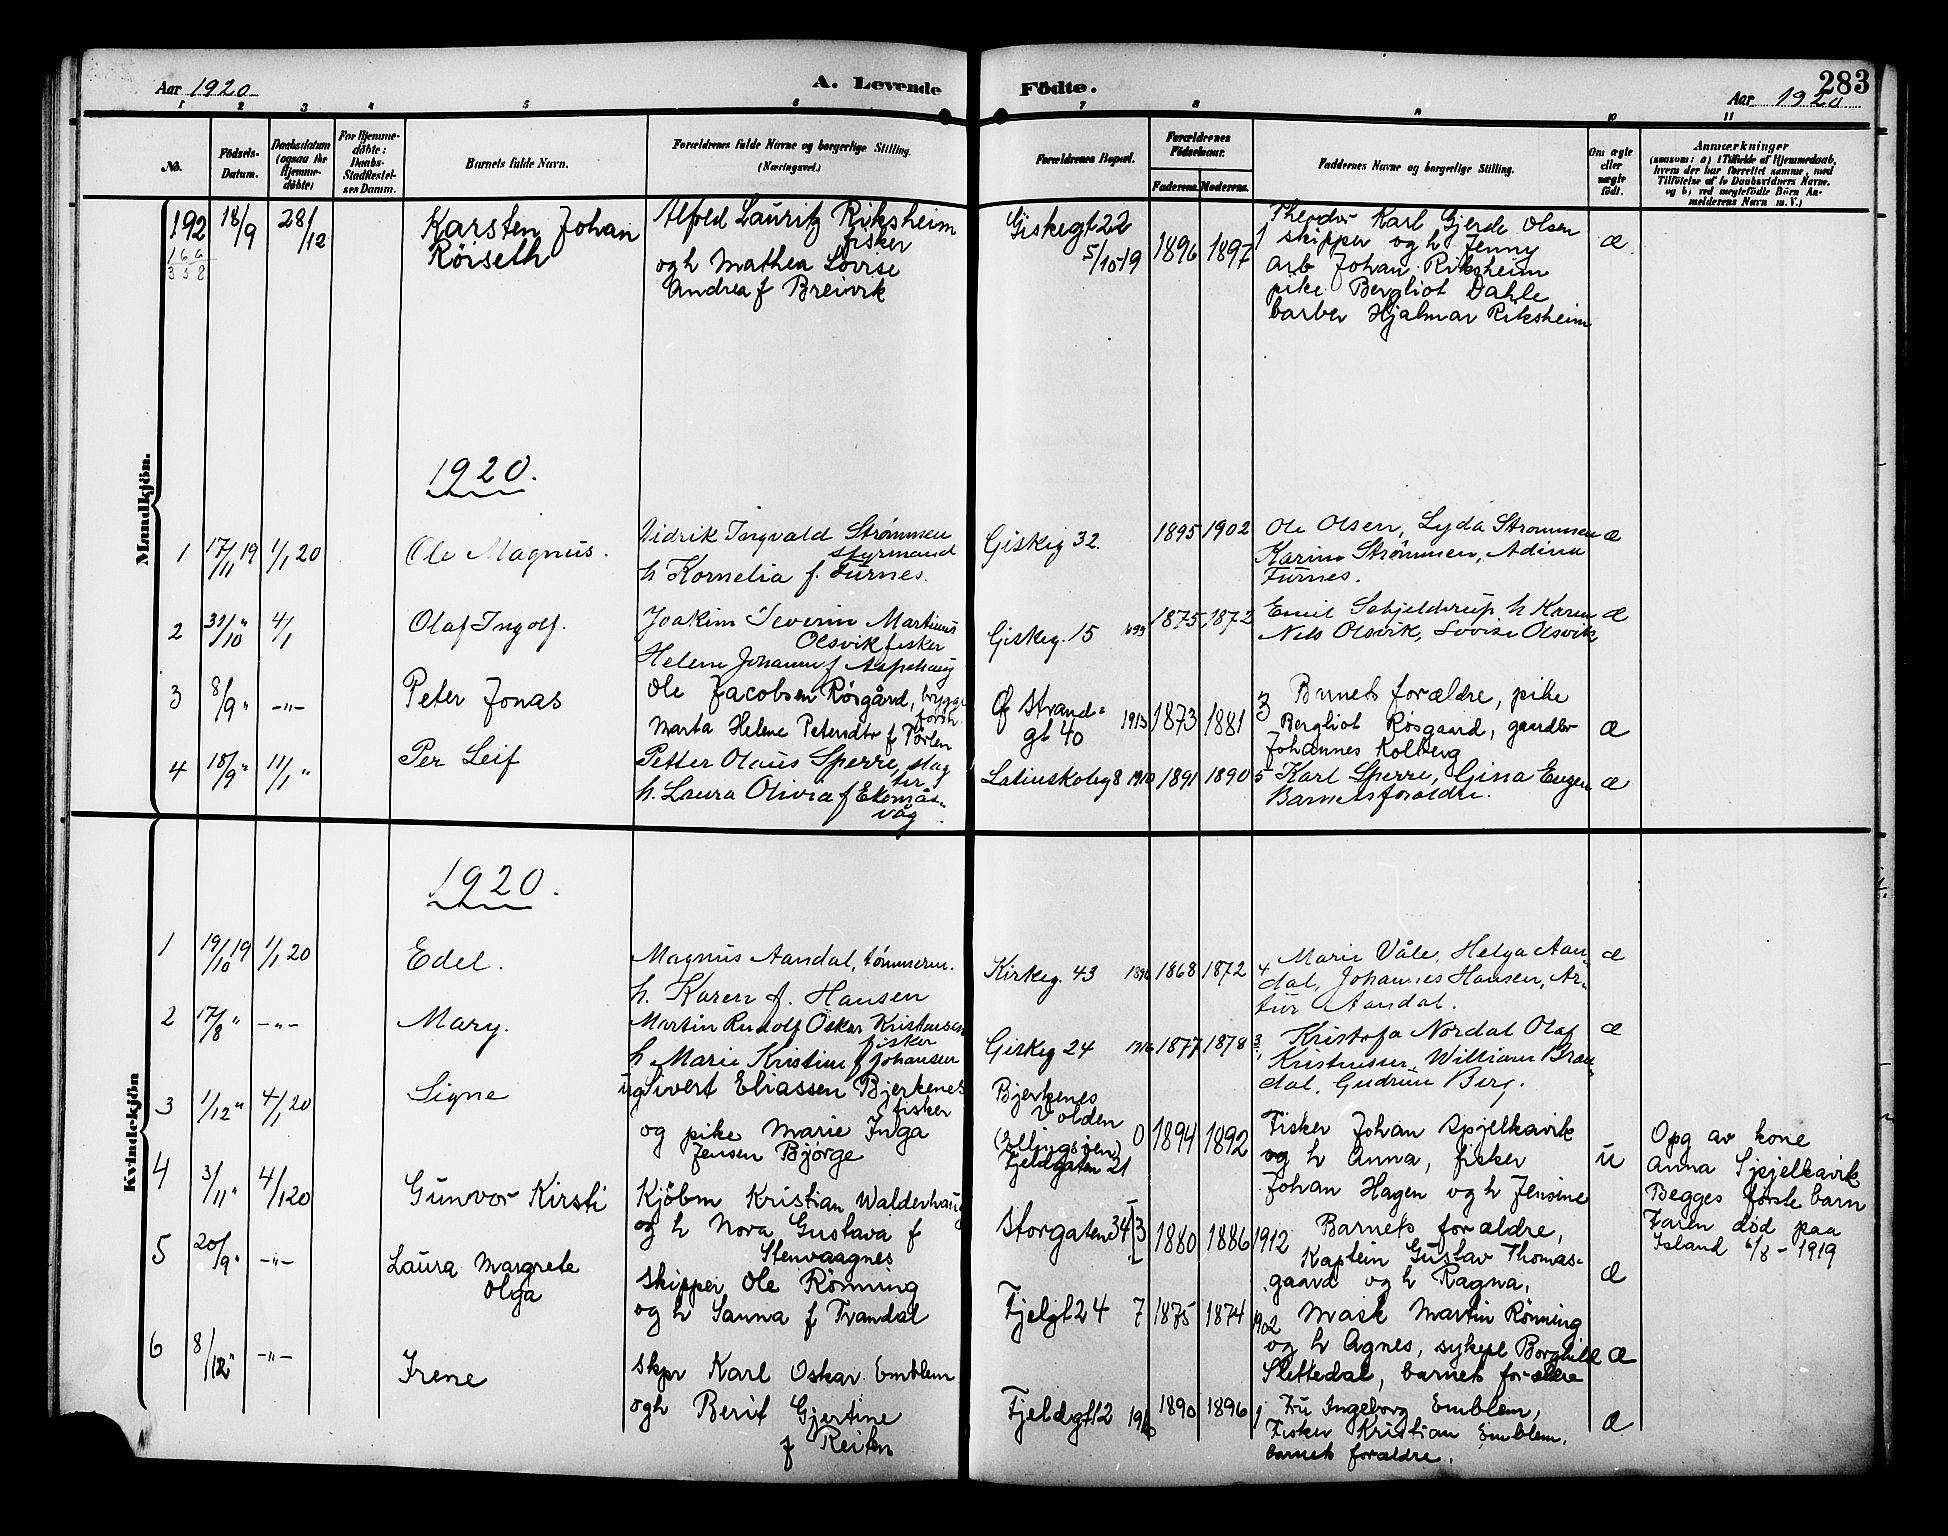 Aar 1920
A. Levende
Födte.
283
Aar 1920
1 2 3 4 5 6 7 8 9 10 11
No.
Födsels-Datum.
Daabsdatum (ogsaa for Hjemme-döbte)
For Hjemme-döbte: Daabs-Stadfæstel-ses Datum.
Barnets fulde Navn.
Forældrenes fulde Navne og borgerlige Stilling.
(Næringsvei.)
Forældrenes Bopæl.
Forældrenes Födselsaar.
Faderens. Moderens.
Faddernes Navne og borgerlige Stilling.
Om ægte eller uægte födt.
Anmærkninger
(saasom: a) i Tilfælde af Hjemmedaab,
hvem der har forrettet samme, med
Tilföielse af to Daabsvidners Navne.
og b) ved uægtefödte Börn An-
melderens Navn m. V.)
Mandkjön.
192 18/9 28/12
166
358
Karsten Johan
Röiseth
Alfred Lauritz Riksheim
fisker
og h Mathea Lovise
Andrea f Breivik
Giskegt 22
5/10 19 1896 1897 1
Theodor Karl Gjerde Olsen
skipper og h Jenny
arb Johan Riksheim
pike Bergliot Dahle
barber Hjalmar Riksheim
æ
1920.
1 17/11 19 1/1 20
Ole Magnus.
Didrik Ingvald Strømmen
styrmand
h Kornelia f. Furnes.
Giskeg 32.
1895 1902
Ole Olsen, Lyda Strømmen
Karine Strømmen, Adina
Furnes.
æ
2 31/10 " 4/1
Olaf Ingolf.
Joakim Severin Martinus
Olsvik fisker
Helene Johanne f Aspehaug
Giskeg. 15
1875 1872
Emil Schjelderup h Karen
Nels Olsvik, Lovise Olsvik
æ
3 8/9 " -"-
Peter Jonas
Ole Jacobsen Røsgård, brygge
form
Marta Helene Petersdtr f Törlen
Ø Strand=
gt 40
1913 1873 1881 3
Barnets forældre, pike
Bergliot Røsgaard, gaardbr
Johannes Kolberg
æ
4 18/9 " 11/1 "
Per Leif
Petter Olaus Sperre, slag
ter
h. Laura Olivia f Ekornås-
våg
Latinskoleg 8 1910 1891 1890 5
Karl Sperre, Gina Eugen
Barnets forældre.
æ
Kvindekjön
1920.
1 19/10 19 1/1 20
Edel.
Magnus Aandal, tømmerm.
h. Karen f. Hansen
Kirkeg. 43 1896 1868 1872 4
Marie Våle, Helga Aan-
dal, Johannes Hansen, Ar-
tur Aandal.
æ
2 17/8 " -"-
Mary.
Martin Rudolf Oskar Kristensen
fisker
h. Marie Kristine f Johansen
Giskeg 24 1916 1877 1878 3
Kristofa Nordal Olaf
Kristensen, William Bran-
dal, Gudrun Berg.
æ
3 1/12 " 4/1 20
Signe
ug Sivert Eliassen Bjerkenes
fisker
og pike Marie Inga
Jensen Bjørge
Bjerkenes
Volden
(Ellingsøen)
Fjeldgaten 21
0 1894 1892
Fisker Johan Spjelkavik
og h Anna, fisker
Johan Hagen og h Jensine
u
Opg av kone
Anna Spjelkavik
Begges første barn
Faren død paa
Island 6/8 - 1919
4 3/11 " 4/1 20
Gunvor Kirsti
Kjöbm Kristian Walderhaug
og h Nora Gustava f
Stenvaagnes
Storgaten 34 3 1880 1886 1912
Barnets forældre,
Kaptein Gustav Thomas-
gaard og h Ragna,
æ
5 20/9 " -"-
Laura Margrete
Olga
Skipper Ole Rønning
og h Sanna f Trandal
Fjelgt 24 7 1875 1874 1902
Mask Martin Rønning
og h Agnes, sykepl Borghild
Slettedal, barnets forældre
æ
6 8/12 " -"-
Irene
Skpr Karl Oskar Emblem
og h Berit Gjertine
f Reiten
Fjeldgt 12 1916 1890 1896 1
Fru Ingeborg Emblem,
Fisker Kristian Emblem,
barnets forældre.
æ